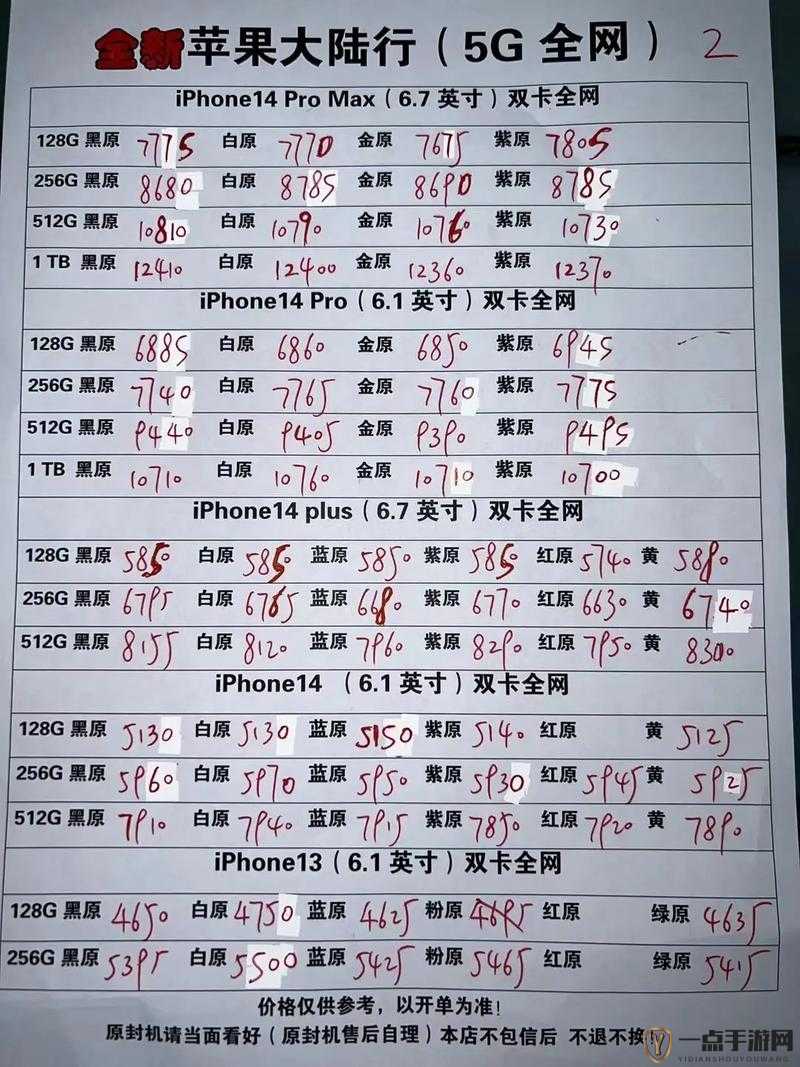 全新苹果大陆行（5G 全网） 2
iPhone14 Pro Max（6.7 英寸）双卡全网
128G 黑原 7775 白原 7770 金原 7675 紫原 7805
256G 黑原 8680 白原 8785 金原 8690 紫原 8785
512G 黑原 10810 白原 10790 金原 10760 紫原 10730
1 TB 黑原 12410 白原 12400 金原 12360 紫原 12370
iPhone14 Pro（6.1 英寸）双卡全网
128G 黑原 6885 白原 6860 金原 6850 紫原 6945
256G 黑原 7740 白原 7765 金原 7760 紫原 7775
512G 黑原 9440 白原 9405 金原 9390 紫原 9495
1 TB 黑原 10710 白原 10760 金原 10710 紫原 10700
iPhone14 plus（6.7 英寸）双卡全网
128G 黑原 5850 白原 5850 蓝原 5850 紫原 5850 红原 5740 黄 5880
256G 黑原 6795 白原 6765 蓝原 6680 紫原 6770 红原 6630 黄 6740
512G 黑原 8155 白原 8120 蓝原 7960 紫原 8290 红原 7950 黄 8300
iPhone14 （6.1 英寸）双卡全网
128G 黑原 5130 白原 5130 蓝原 5150 紫原 5140 红原 黄 5125
256G 黑原 5960 白原 5970 蓝原 5950 紫原 5930 红原 5945 黄 5925
512G 黑原 7910 白原 7940 蓝原 7915 紫原 7850 红原 7920 黄 7890
iPhone13（6.1 英寸）双卡全网
128G 黑原 4650 白原 4750 蓝原 4625 粉原 4695 红原 绿原 4635
256G 黑原 5395 白原 5500 蓝原 5425 粉原 5465 红原 绿原 5415
价格仅供参考，以开单为准！
原封机请当面看好（原封机售后自理）本店不包信后 不退不换
一点手游网
YIDIANSHOUYOUWANG